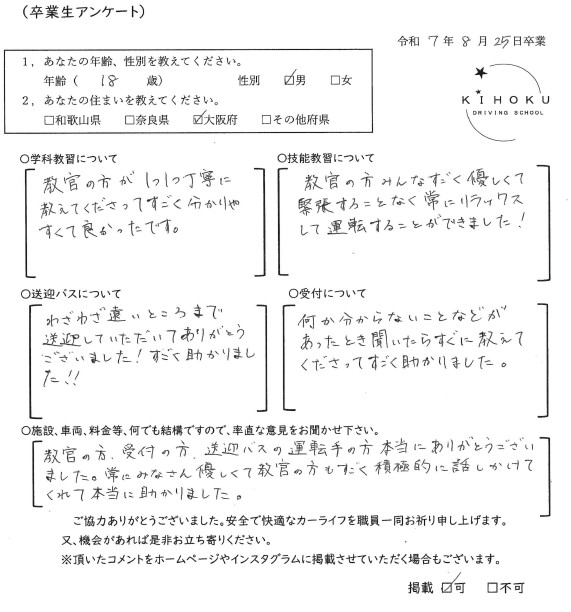 (卒業生アンケート)
令和 7 年 8 月 25 日卒業
1, あなたの年齢、性別を教えてください。
年齢 ( 18 歳) 性別 ☑男 □女
2, あなたの住まいを教えてください。
□和歌山県 □奈良県 ☑大阪府 □その他府県
KIHOKU
DRIVING SCHOOL
○学科教習について
教官の方が1つ1つ丁寧に
教えてくださってすごく分かりや
すくて良かったです。
○技能教習について
教官の方みんなすごく優しくて
緊張することなく常にリラックス
して運転することができました!
○送迎バスについて
わざわざ遠いところまで
送迎していただいてありがとう
ございました!すごく助かりまし
た!!
○受付について
何か分からないことなどが
あったとき聞いたらすぐに教えて
くださってすごく助かりました。
○施設、車両、料金等、何でも結構ですので、率直な意見をお聞かせ下さい。
教官の方、受付の方、送迎バスの運転手の方本当にありがとうござい
ました。常にみなさん優しくて教官の方もすごく積極的に話しかけて
くれて本当に助かりました。
ご協力ありがとうございました。安全で快適なカーライフを職員一同お祈り申し上げます。
又、機会があれば是非お立ち寄りください。
※頂いたコメントをホームページやインスタグラムに掲載させていただく場合もございます。
掲載 ☑可 □不可